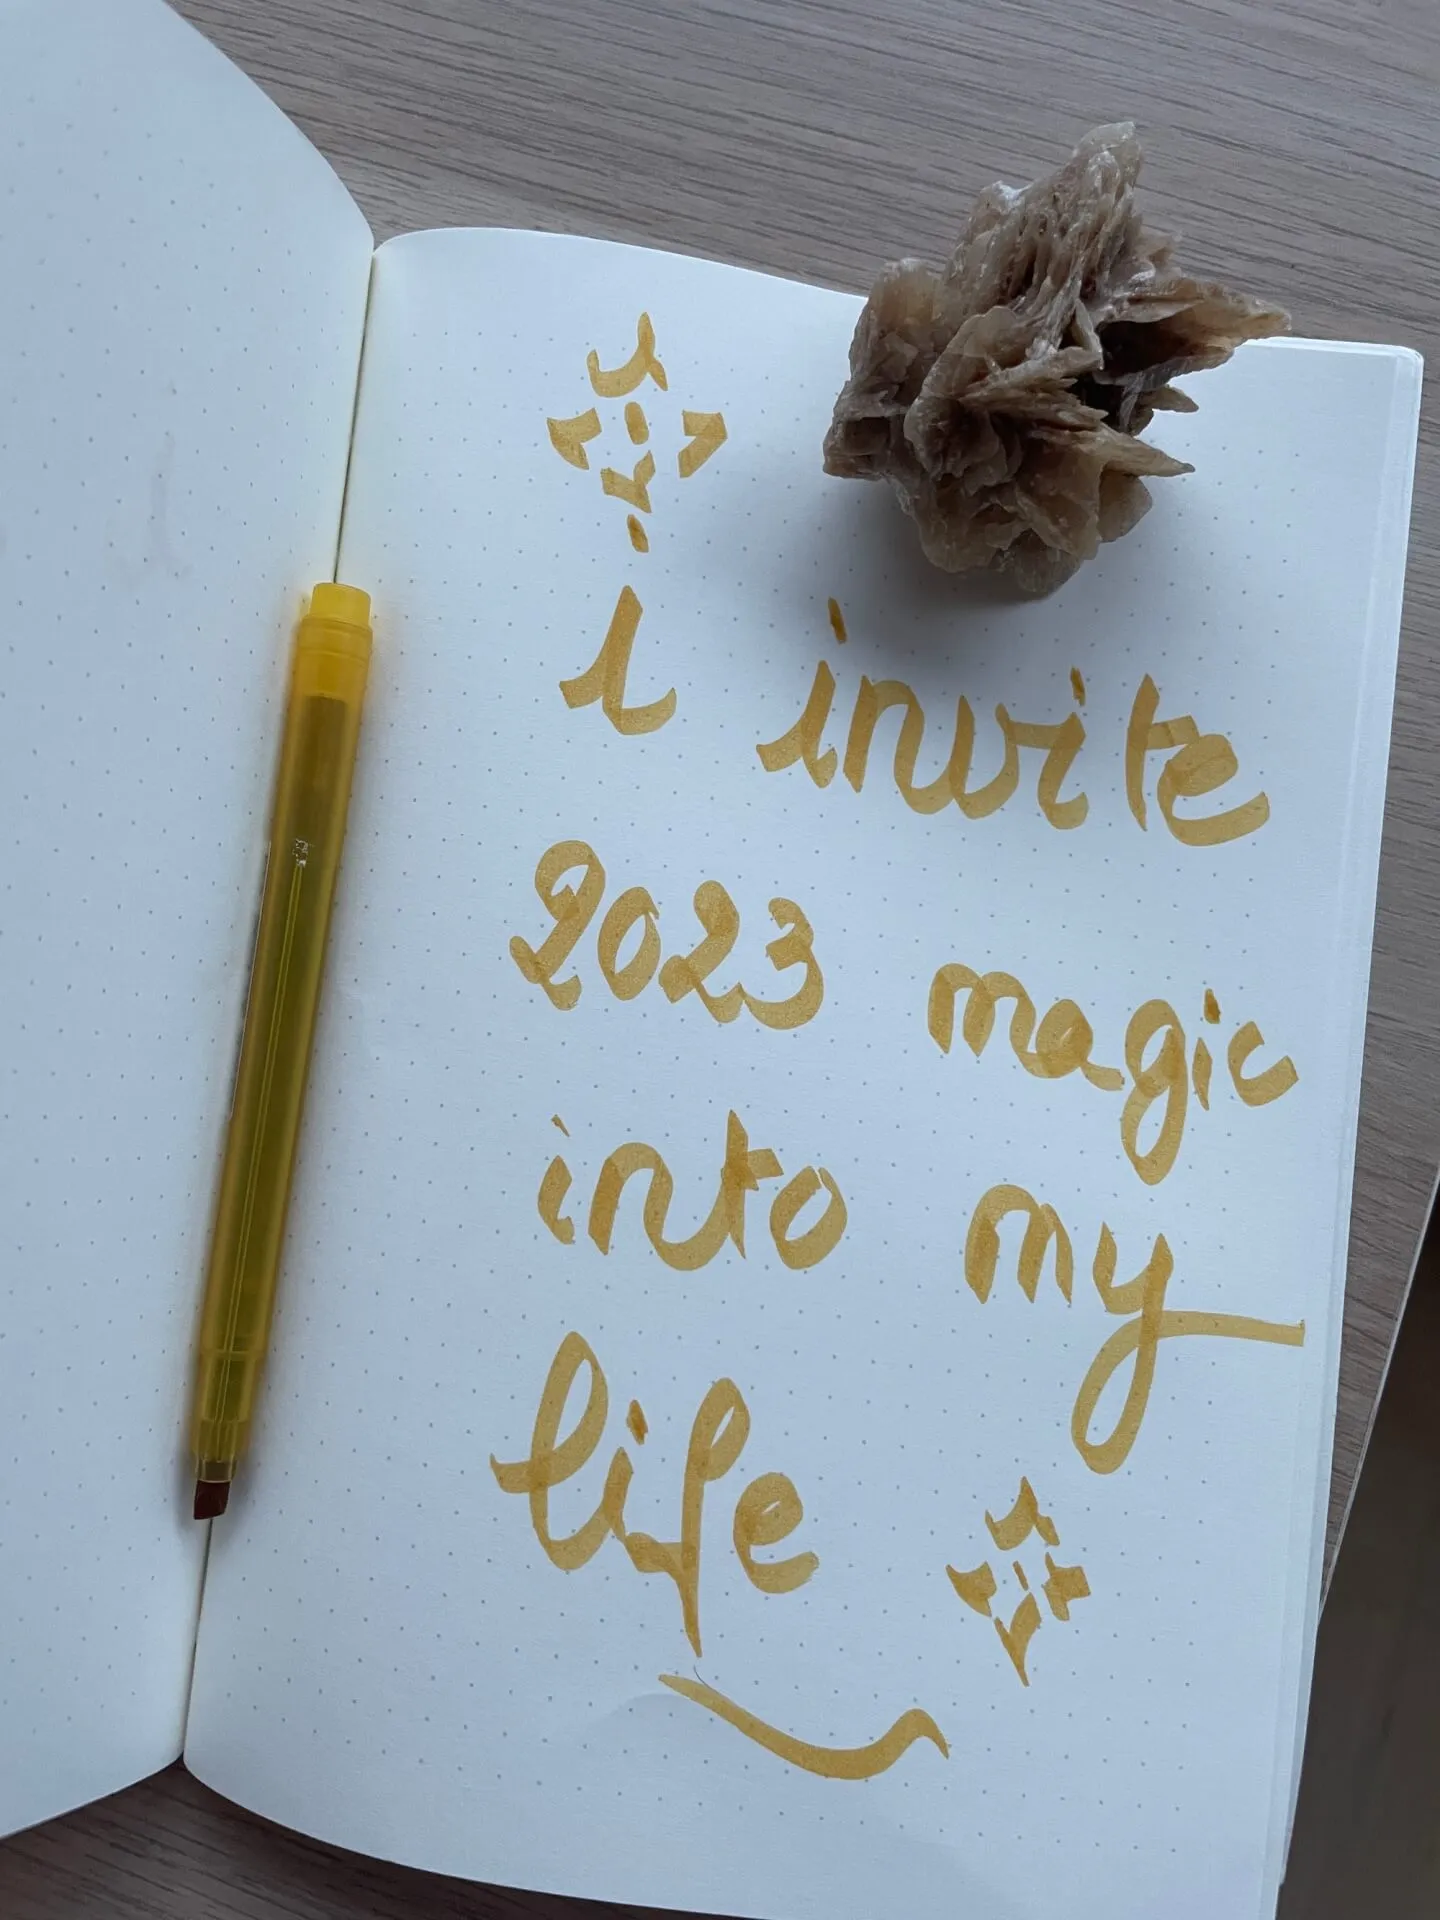 I invite
2023 magic
into my
life